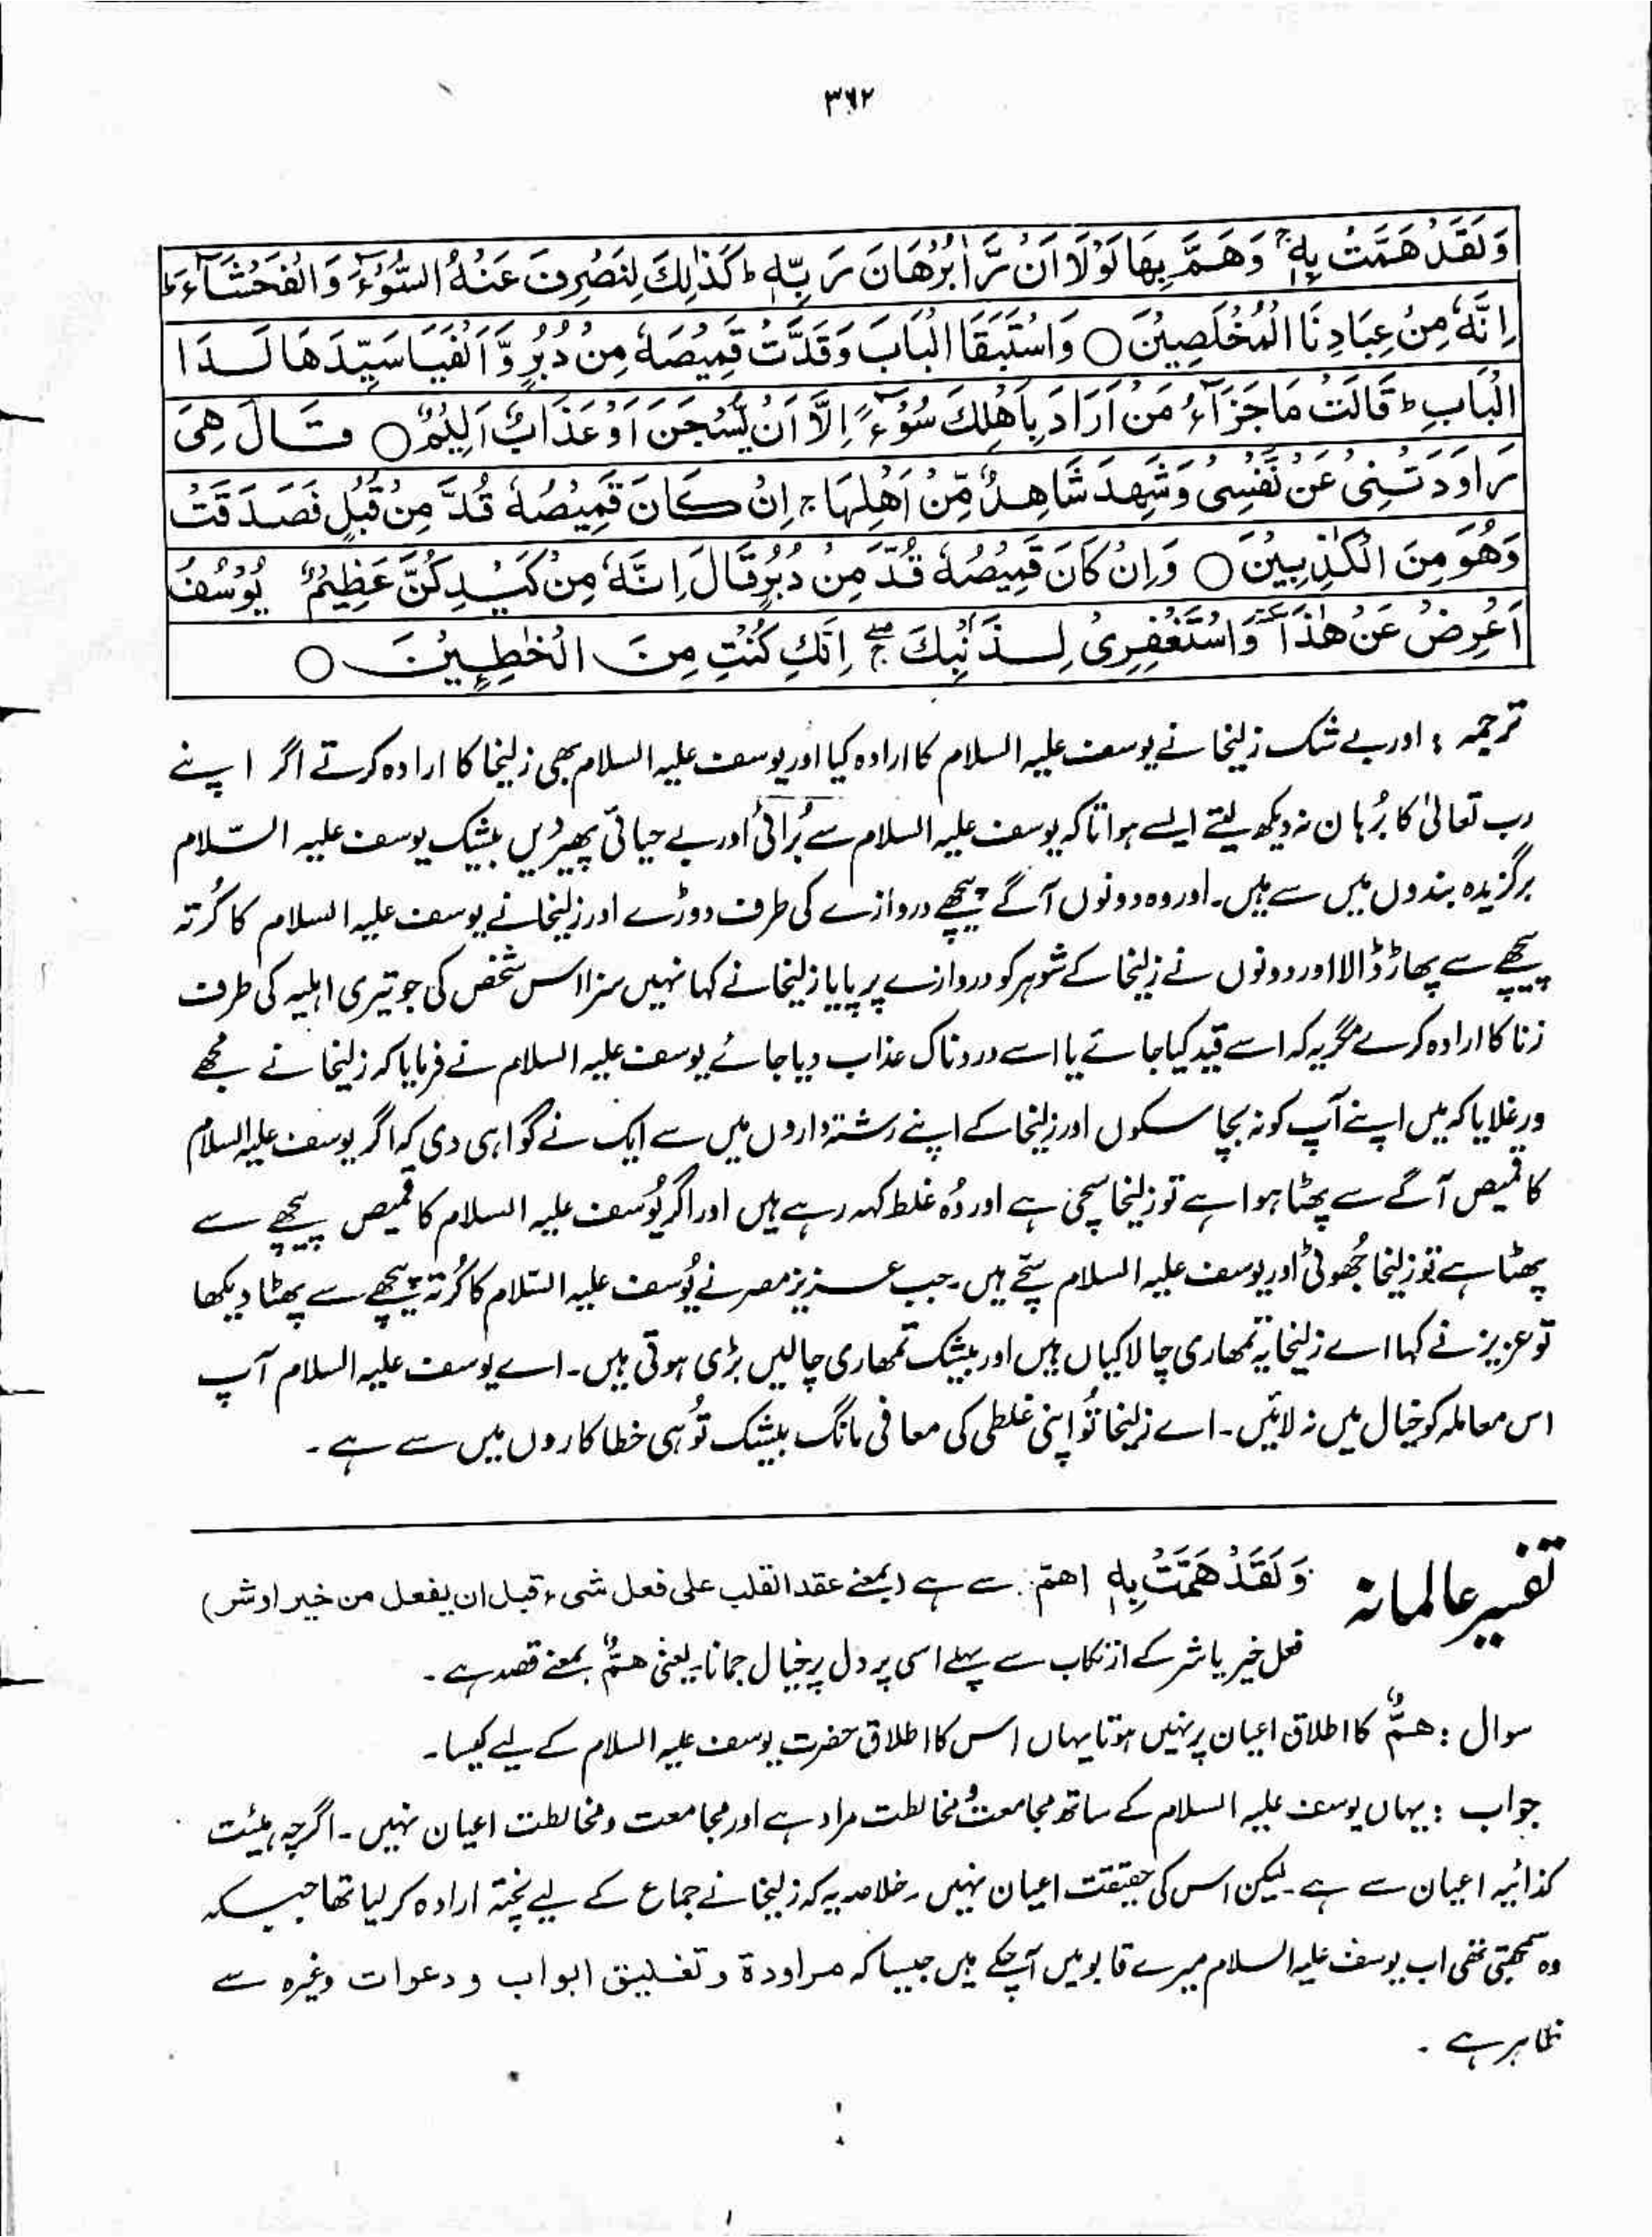 ۳۶۲
وَلَقَدْ هَمَّتْ بِهٖ ۚ وَهَمَّ بِهَا لَوْلَا اَنْ رَّاٰ بُرْهَانَ رَبِّهٖ ؕ كَذٰلِكَ لِنَصْرِفَ عَنْهُ السُّوْٓءَ وَالْفَحْشَآءَ ؕ
اِنَّهٗ مِنْ عِبَادِنَا الْمُخْلَصِيْنَ ○ وَاسْتَبَقَا الْبَابَ وَقَدَّتْ قَمِيْصَهٗ مِنْ دُبُرٍ وَّاَلْفَيَا سَيِّدَهَا لَدَا
الْبَابِ ؕ قَالَتْ مَا جَزَآءُ مَنْ اَرَادَ بِاَهْلِكَ سُوْٓءًا اِلَّآ اَنْ يُّسْجَنَ اَوْ عَذَابٌ اَلِيْمٌ ○ قَالَ هِىَ
رَاوَدَتْنِىْ عَنْ نَّفْسِىْ وَشَهِدَ شَاهِدٌ مِّنْ اَهْلِهَا ۚ اِنْ كَانَ قَمِيْصُهٗ قُدَّ مِنْ قُبُلٍ فَصَدَقَتْ
وَهُوَ مِنَ الْكٰذِبِيْنَ ○ وَاِنْ كَانَ قَمِيْصُهٗ قُدَّ مِنْ دُبُرٍ قَالَ اِنَّهٗ مِنْ كَيْدِكُنَّ عَظِيْمٌ يُوْسُفُ
اَعْرِضْ عَنْ هٰذَا وَاسْتَغْفِرِىْ لِذَنْۢبِكِ ۖۚ اِنَّكِ كُنْتِ مِنَ الْخٰطِـِٕيْنَ ○
ترجمہ : اور بے شک زلیخا نے یوسف علیہ السلام کا ارادہ کیا اور یوسف علیہ السلام بھی زلیخا کا ارادہ کرتے اگر اپنے
رب تعالیٰ کا بُرہان نہ دیکھ لیتے ایسے ہوا تاکہ یوسف علیہ السلام سے بُرائی اور بے حیائی پھیر دیں بیشک یوسف علیہ السّلام
برگزیدہ بندوں میں سے ہیں۔ اور وہ دونوں آگے پیچھے دروازے کی طرف دوڑے اور زلیخا نے یوسف علیہ السلام کا کُرتہ
پیچھے سے پھاڑ ڈالا اور دونوں نے زلیخا کے شوہر کو دروازے پر پایا زلیخا نے کہا نہیں سزا اس شخص کی جو تیری اہلیہ کی طرف
زنا کا ارادہ کرے مگر یہ کہ اسے قید کیا جائے یا اسے دردناک عذاب دیا جائے یوسف علیہ السلام نے فرمایا کہ زلیخا نے مجھے
ورغلایا کہ میں اپنے آپ کو نہ بچا سکوں اور زلیخا کے اپنے رشتہ داروں میں سے ایک نے گواہی دی کہ اگر یوسف علیہ السلام
کا قمیص آگے سے پھٹا ہوا ہے تو زلیخا سچی ہے اور وُہ غلط کہہ رہے ہیں اور اگر یُوسف علیہ السلام کا قمیص پیچھے سے
پھٹا ہے تو زلیخا جُھوٹی اور یوسف علیہ السلام سچّے ہیں۔ جب عزیز مصر نے یُوسف علیہ السّلام کا کُرتہ پیچھے سے پھٹا دیکھا
تو عزیز نے کہا اے زلیخا یہ تمھاری چالاکیاں ہیں اور بیشک تمھاری چالیں بڑی ہوتی ہیں۔ اے یوسف علیہ السلام آپ
اس معاملہ کو خیال میں نہ لائیں۔ اے زلیخا تُو اپنی غلطی کی معافی مانگ بیشک تُو ہی خطا کاروں میں سے ہے۔
تفسیر عالمانہ
وَلَقَدْ هَمَّتْ بِهٖ اهمّ سے ہے (بمعنے عقد القلب علی فعل شیء قبل ان یفعل من خیر او شر)
فعل خیر یا شر کے ارتکاب سے پہلے اسی پر دل پر خیال جمانا یعنی همٌّ بمعنے قصد ہے۔
سوال : همٌّ کا اطلاق اعیان پر نہیں ہوتا یہاں اس کا اطلاق حضرت یوسف علیہ السلام کے لیے کیسا۔
جواب : یہاں یوسف علیہ السلام کے ساتھ مجامعت و مخالطت مراد ہے اور مجامعت و مخالطت اعیان نہیں۔ اگرچہ ہیئت
کذائیہ اعیان سے ہے۔ لیکن اس کی حقیقت اعیان نہیں۔ خلاصہ یہ کہ زلیخا نے جماع کے لیے پختہ ارادہ کر لیا تھا جبکہ
وہ سمجھتی تھی اب یوسف علیہ السلام میرے قابو میں آچکے ہیں جیسا کہ مراودۃ و تغلیق ابواب و دعوات وغیرہ سے
ظاہر ہے۔